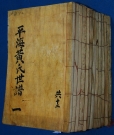 平海黃氏世譜
一
共十三